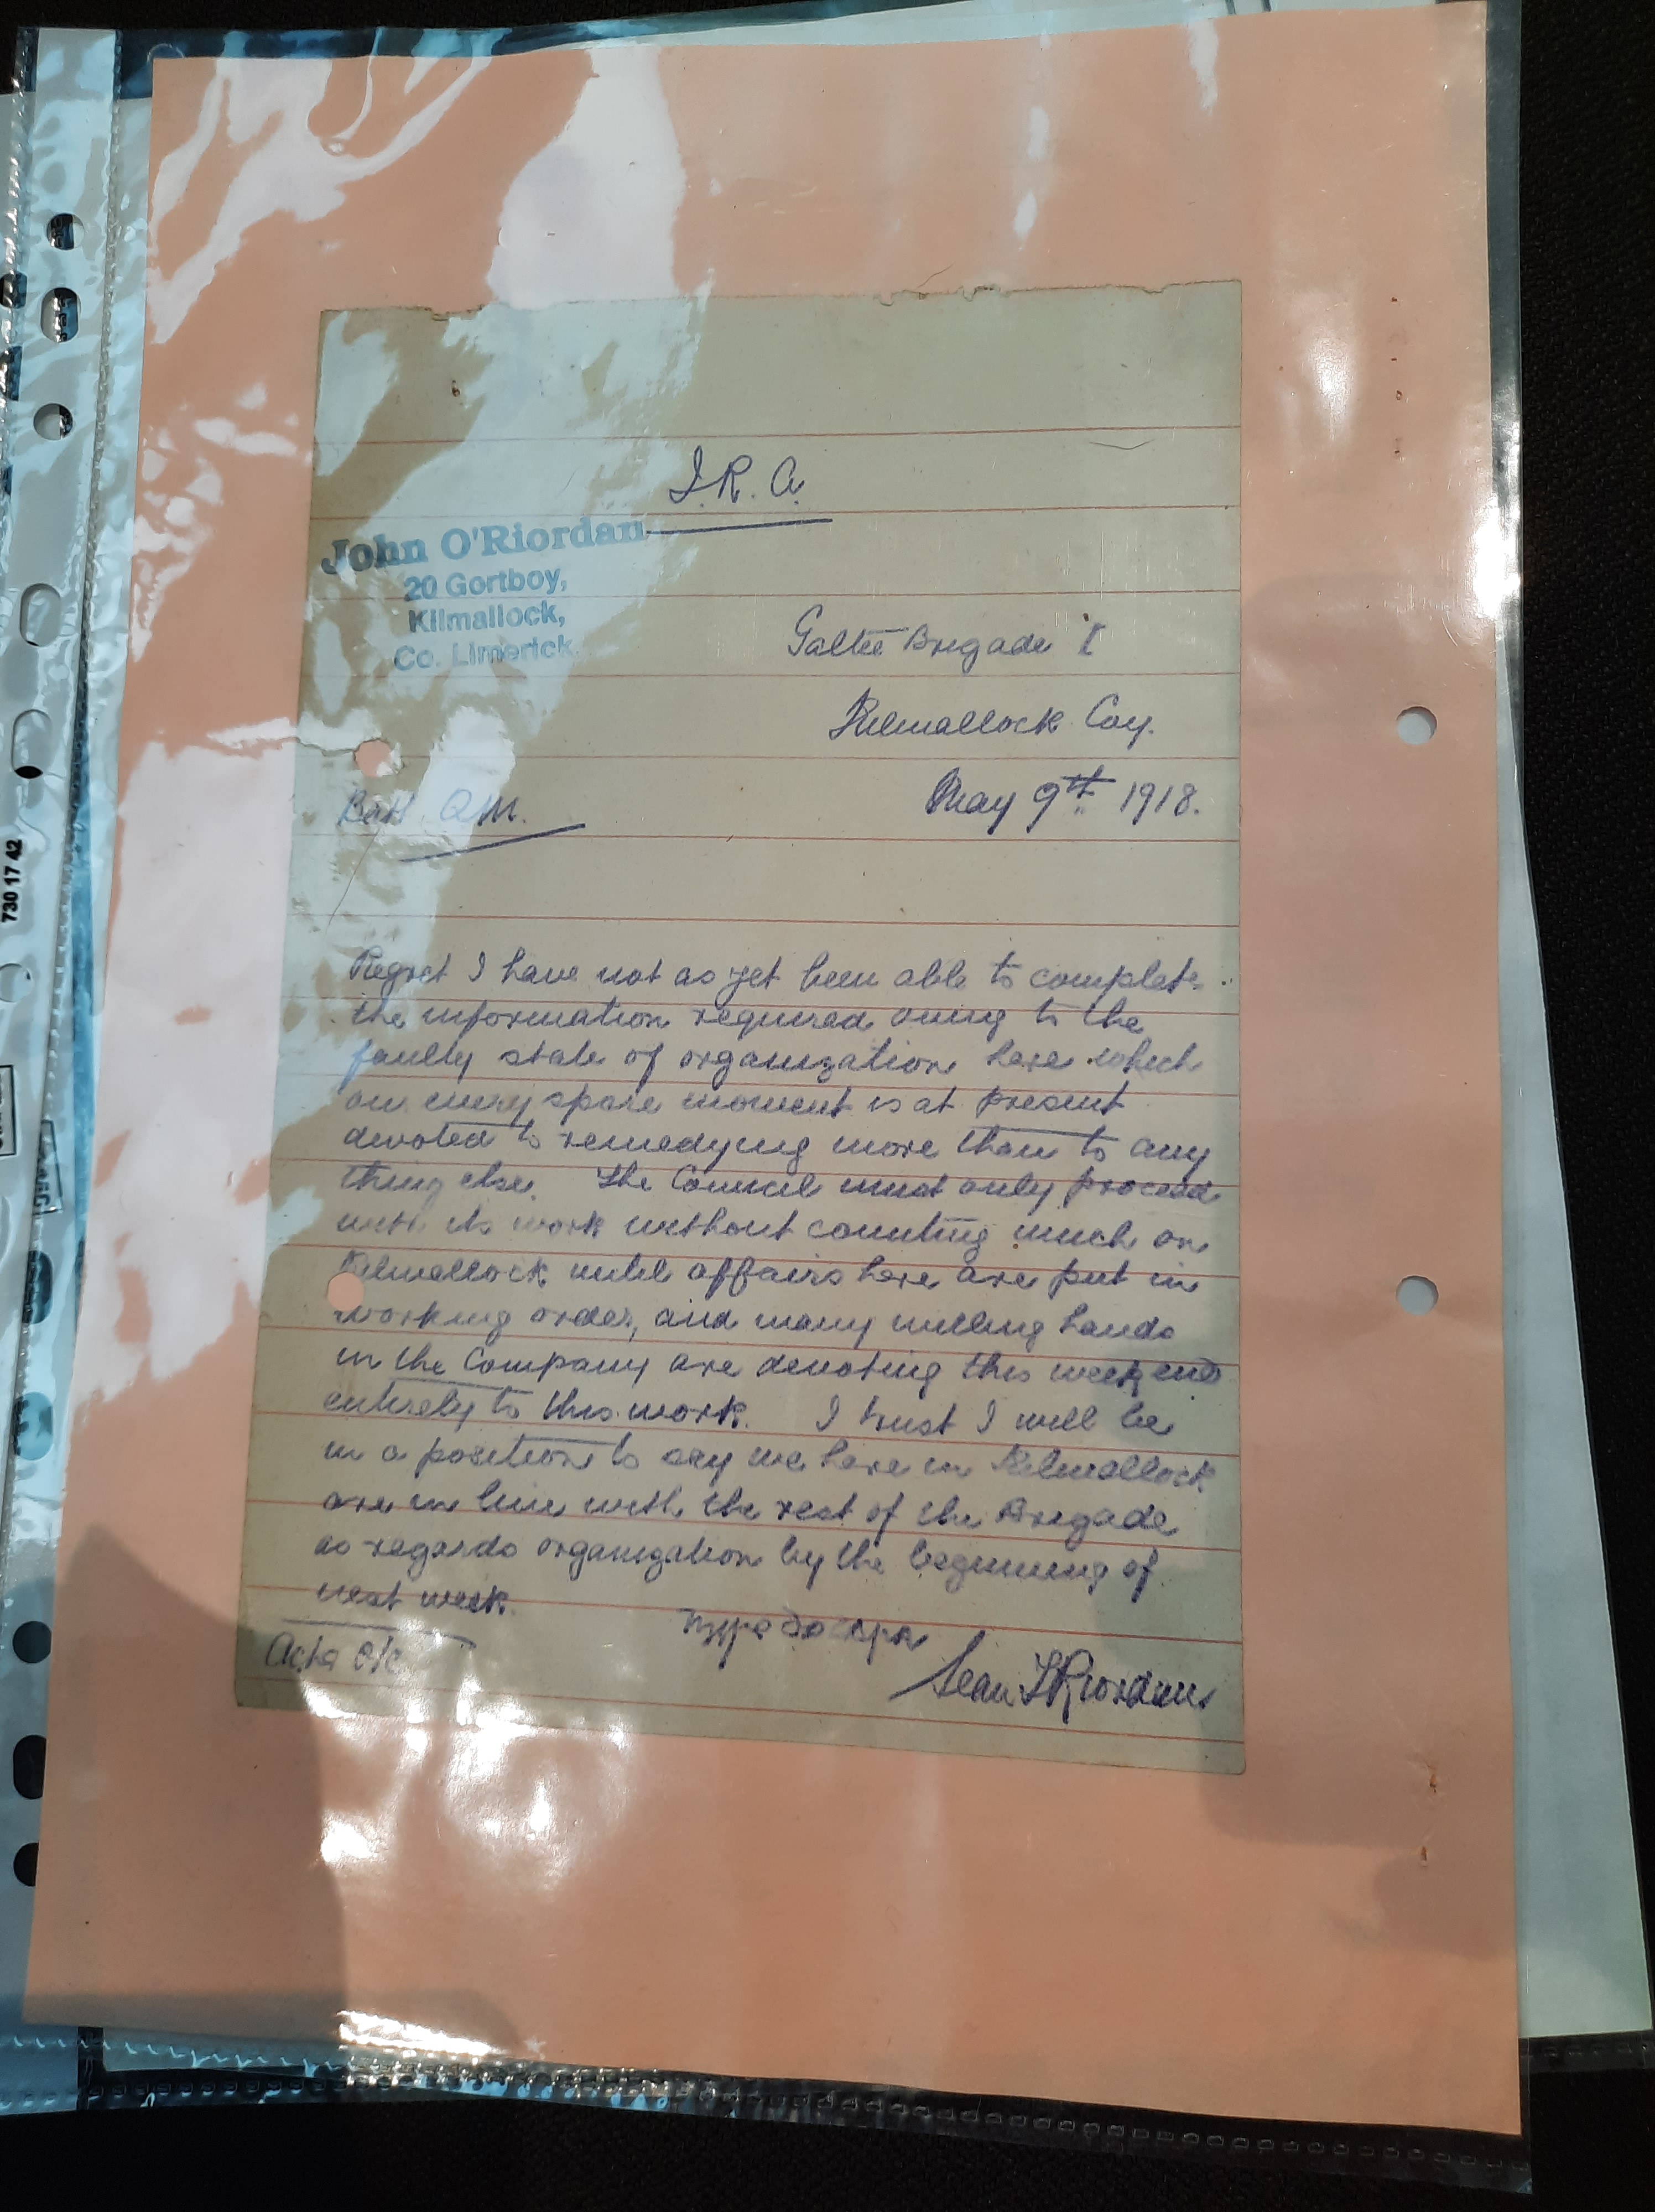 I.R.A.
John O'Riordan
20 Gortboy,
Kilmallock,
Co. Limerick.
Galtee Brigade I
Kilmallock Coy.
May 9th 1918.
Batt. Q.M.
Regret I have not as yet been able to complete
the information required owing to the
faulty state of organization here which
our every spare moment is at present
devoted to remedying more than to any
thing else. The Council must only proceed
with its work without counting much on
Kilmallock until affairs here are put in
working order, and many willing hands
in the Company are devoting this week end
entirely to this work. I trust I will be
in a position to say we here in Kilmallock
are in line with the rest of the Brigade
as regards organization by the beginning of
next week.
Mise do chara
Acta O/C
Sean Riordan
730 17 42